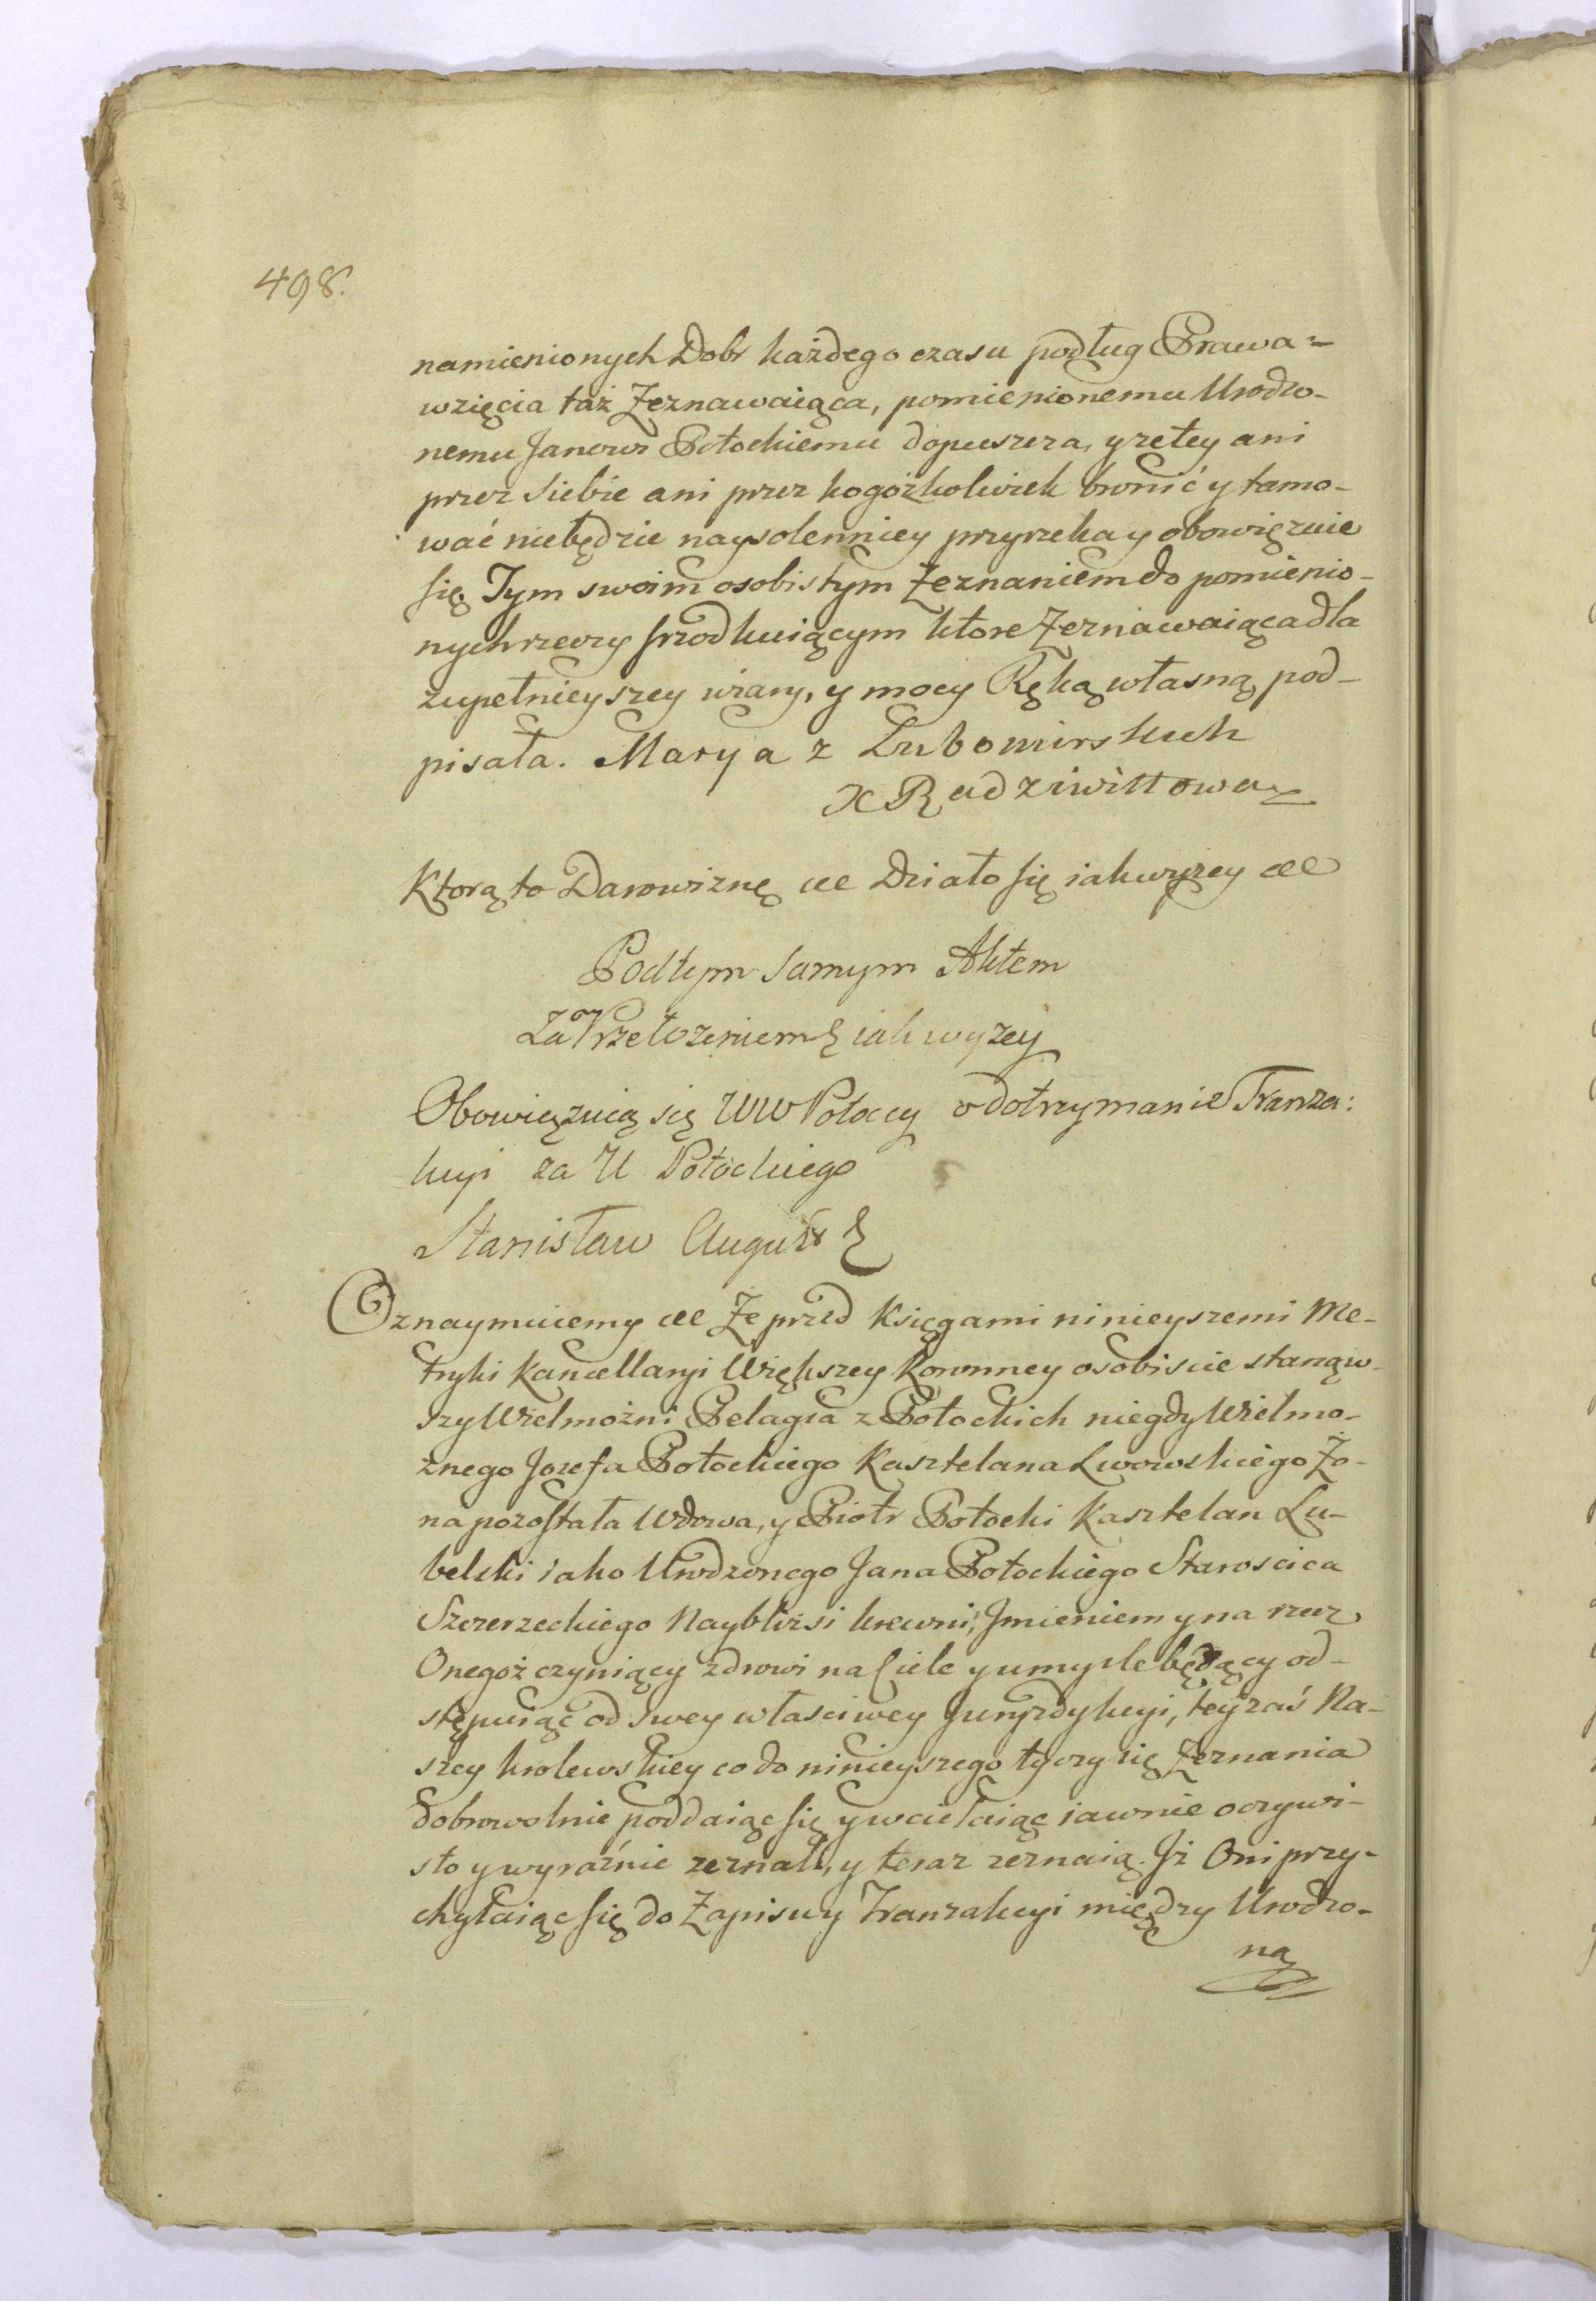 498.
namienionych Dobr każdego czasu podług Prawa =
wzięcia taż Zeznawaiąca, pomienionemu Urodzo-
nemu Janowi Potockiemu dopuszcza, y zetey ani
przez siebie ani przez kogożkolwiek bronić y tamo-
wać niebędzie naysolenniey przyrzeka y obowięzuie
się Tym swoim osobistym Zeznaniem do pomienio-
nych rzeczy srzodkuiącym ktore Zeznawaiąca dla
zupełnieyszey wiary, y mocy Ręką własną pod-
pisała. Marya z Lubomirskich
X Radziwiłłowa
Ktorą to Darowiznę etc Działo się iak wyzey etc
Podtym samym Aktem
Za Przełozeniem iak wyzey
Obowięzuią się WW Potoccy o dotrzymanie Tranza:
kcyi za U Potockiego
Stanisław August
Oznaymuiemy etc Że przed Księgami ninieyszemi Me-
tryki Kancellaryi Większey Koronney osobiscie stanąw-
szy Wielmożni Pelagia z Potockich niegdy Wielmo-
żnego Jozefa Potockiego Kasztelana Lwowskiego Żo-
na pozostała Wdowa, y Piotr Potocki Kasztelan Lu-
belski iako Urodzonego Jana Potockiego Staroscica
Szczerzeckiego Nayblizsi krewni, Jmieniem y na rzecz
Onegoż czyniący zdrowi na Ciele y umysle będący od-
stępuiąc od swey własciwey Juryzdykcyi, teyzaś Na-
szey krolewskiey co do ninieyszego tyczy się Zeznania
dobrowolnie poddaiąc się y wcielaiąc iawnie oczywi-
sto y wyraźnie zeznali, y teraz zeznaią. Jż Oni przy-
chylaiąc się do Zapisu y Tranzakcyi między Urodzo-
ną